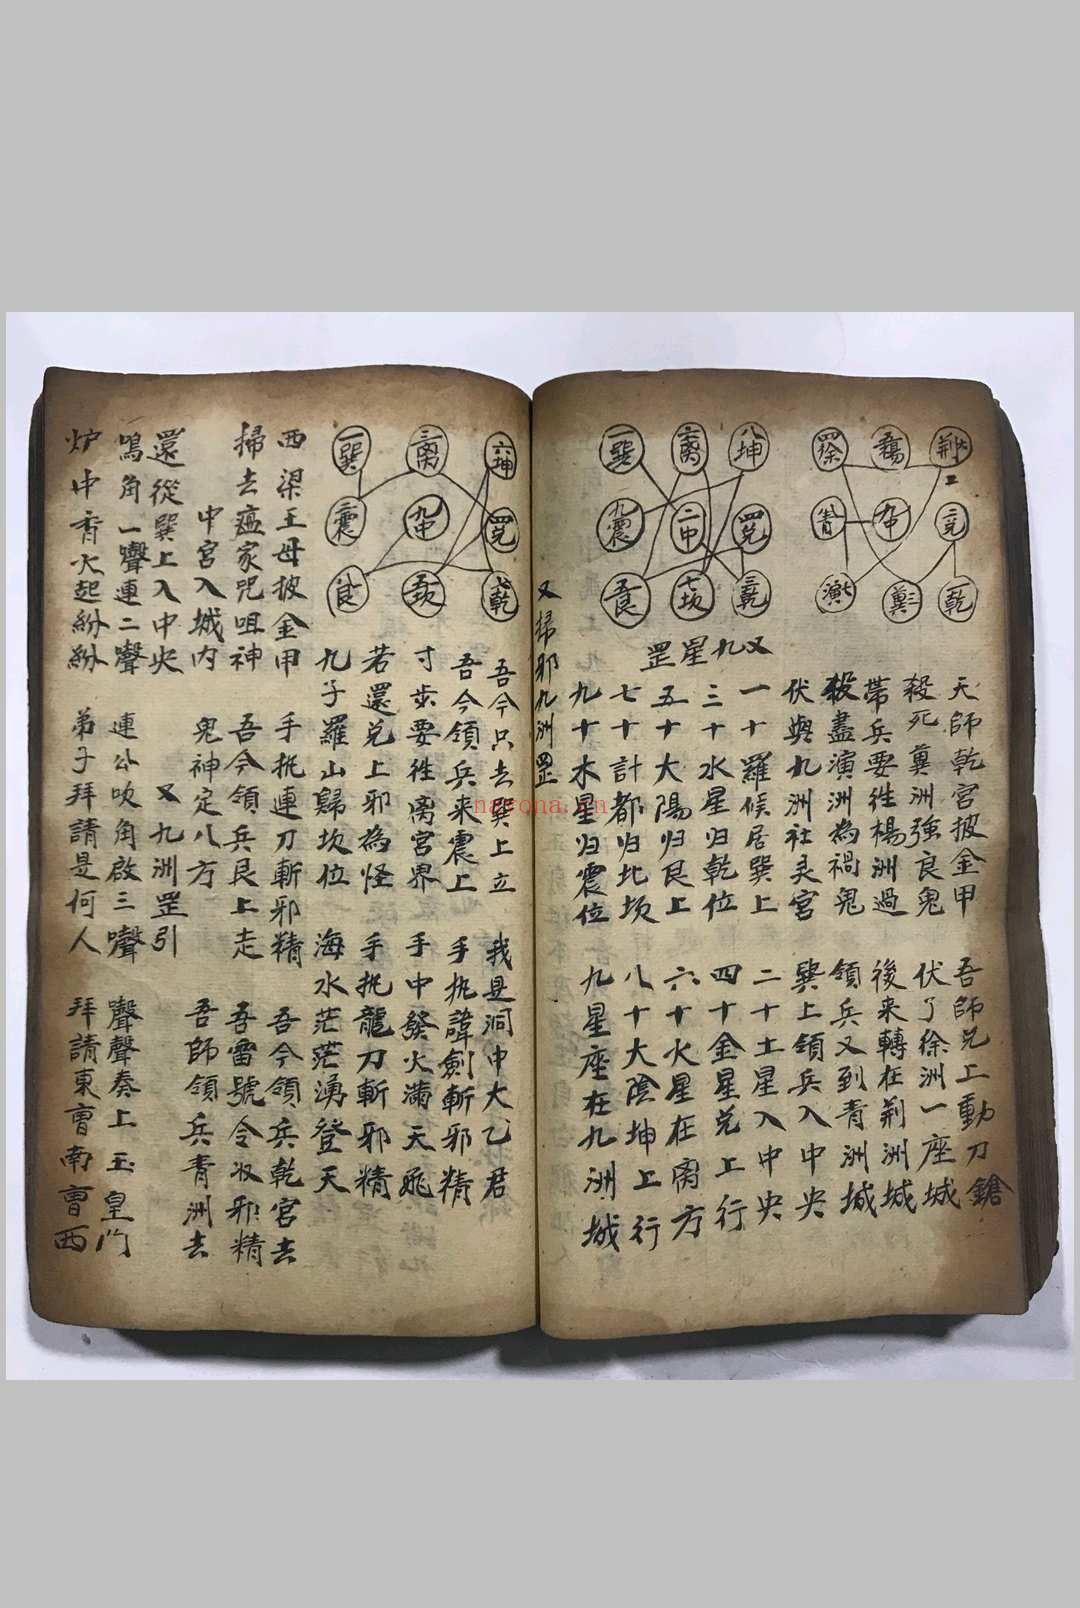 四徐 三楊 荆
青 九中 二兌
演 冀 一乾
天師乾宮披金甲 吾師兌上動刀鎗
殺死冀洲強良鬼 伏了徐洲一座城
帶兵要徃楊洲過 後来轉在荆洲城
殺盡演洲為禍鬼 領兵又到青洲城
伏與九洲社灵宮 巽上領兵入中央
又九星罡
一巽 六离 八坤
九震 二中 四兌
五艮 七坎 三乾
一十羅候居巽上 二十土星入中央
三十水星归乾位 四十金星兌上行
五十大陽归艮上 六十火星在离方
七十計都归北坎 八十大陰坤上行
九十木星归震位 九星座在九洲城
又掃邪九洲罡
一巽 三离 六坤
二震 九中 四兌
艮 五坎 七乾
吾今只去巽上立 我是洞中大乙君
吾今領兵来震上 手扡諱劍斬邪精
寸步要徃离宮界 手中發火滿天飛
若還兌上邪為怪 手扡龍刀斬邪精
九子羅山歸坎位 海水茫茫湧登天
西梁王母披金甲 手扡連刀斬邪精 吾今領兵乾宮去
掃去瘟家咒咀神 吾今領兵艮上走 吾雷號令収邪精
中宮入城内 鬼神定八方 吾師領兵青洲去
還從巽上入中央 又九洲罡引
鳴角一聲連二聲 連公吹角啟三聲 聲聲奏上玉皇门
炉中香火起紛紛 弟子拜請是何人 拜請東曺南曺西
nayona.cn